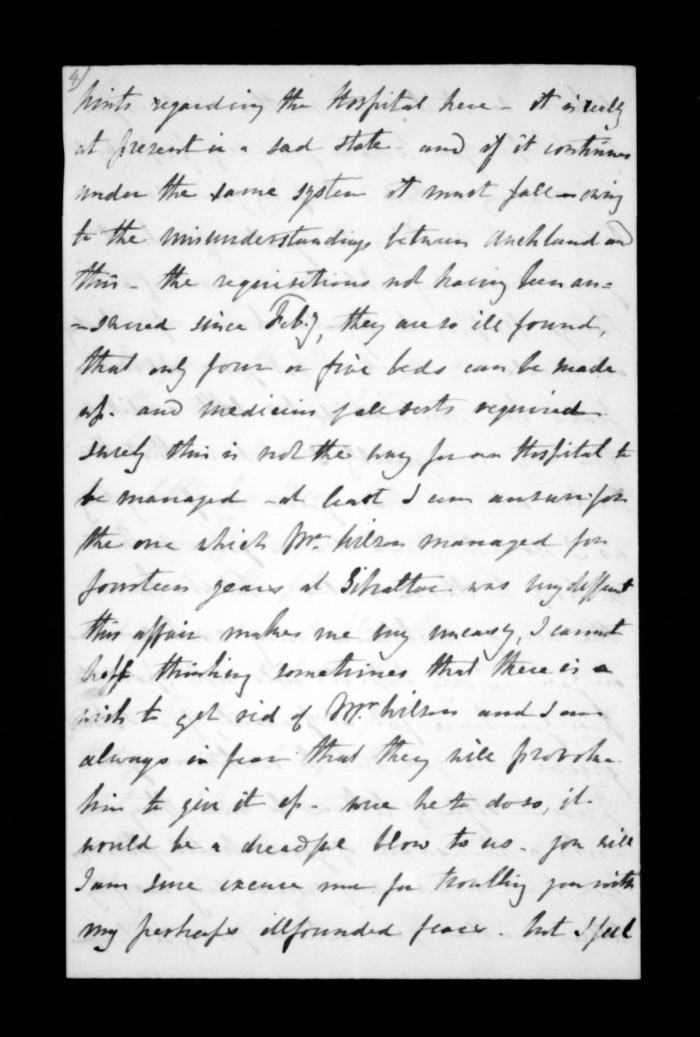 4)
hints regarding the Hospital here - it is really
at present in a sad state - and if it continues
under the same system it must fall - owing
to the misunderstandings between Auckland and
this - the requisitions not having been an=
=swered since Feby, they are so ill found,
that only four or five beds can be made
up. and medicines of all sorts required
surely this is not the way for an Hospital to
be managed - at least I can answer for
the one which Mr. Wilson managed for
fourteen years at Gibraltar was very diffent
this affair makes me very uneasy, I cannot
help thinking sometimes that there is a
wish to get rid of Mr. Wilson and I am
always in fear that they will provoke
him to give it up - were he to do so, it
would be a dreadful blow to us - you will
I am sure excuse me for troubling you with
my perhaps illfounded fears. but I feel